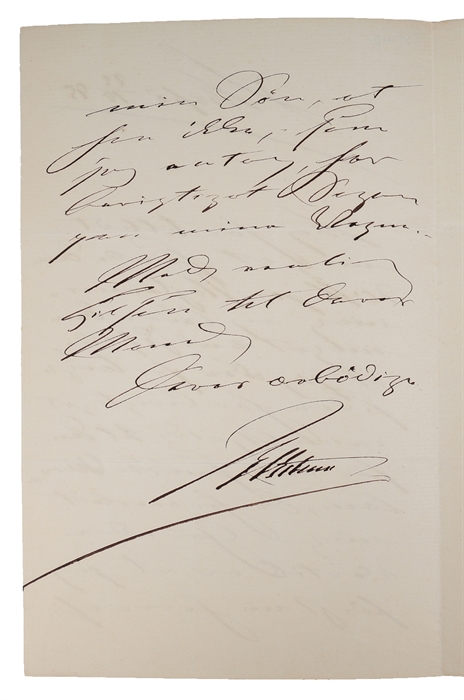 min Sön, at
han ikke, som
jeg antog, har
berigtiget Sagen
paa mine Vegne.
Med venlig
Hilsen til Deres
Mand
Deres ærbödige